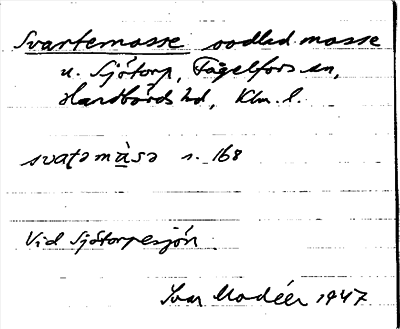 Svartemosse oodlad mosse
u. Sjötorp, Fågelfors sn,
Handbörds hd, Klm. l.
svaʈəmàsə s. 168
Vid Sjötorpesjön.
Ivar Modéer 1947